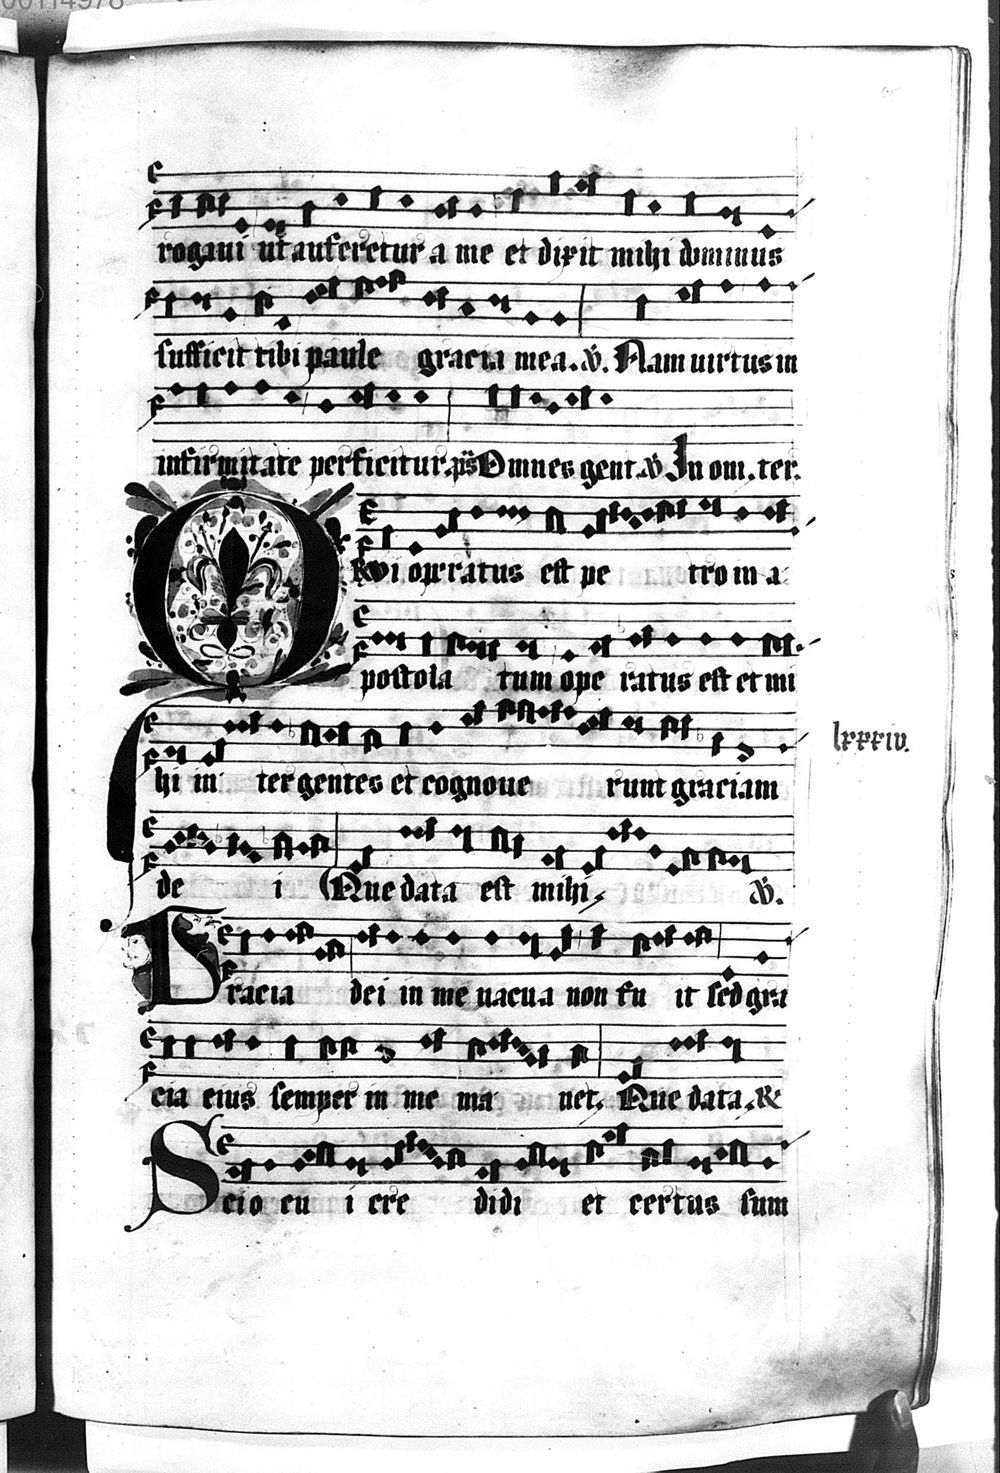 00114978
rogaui ut auferetur a me et dixit mihi dominus
sufficit tibi paule gracia mea. v̇. Nam uirtus in
infirmitate perficitur. ps Omnes gent. v̇ In om. ter.
Qvi operatus est pe tro in a
postola tum ope ratus est et mi
hi in ter gentes et cognoue runt graciam
lxxxiv.
de i Que data est mihi. v̇.
Gracia dei in me uacua non fu it sed gra
cia eius semper in me ma net. Que data. R
Scio cu i cre didi et certus sum